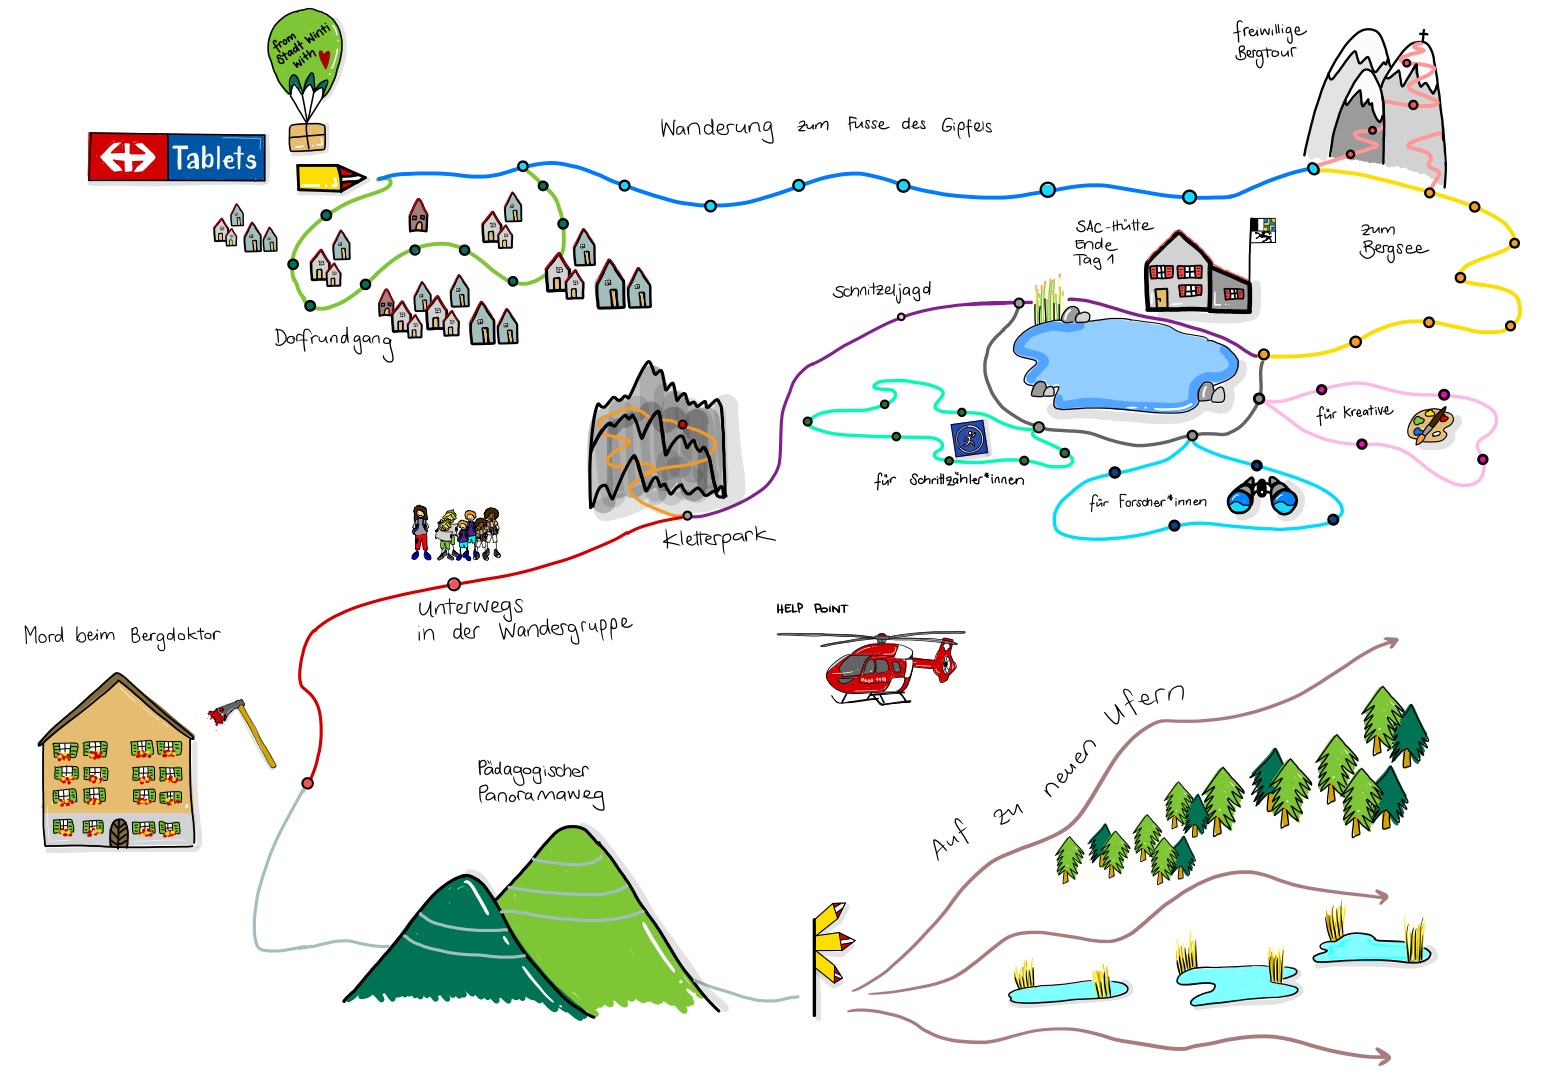 from
Stadt Winti
with
Tablets
Wanderung zum Fusse des Gipfels
freiwillige
Bergtour
zum
Bergsee
SAC-Hütte
Ende
Tag 1
Schnitzeljagd
Dorfrundgang
für Kreative
für Schrittzähler*innen
für Forscher*innen
Kletterpark
Unterwegs
in der Wandergruppe
HELP POINT
Mord beim Bergdoktor
Pädagogischer
Panoramaweg
Auf zu neuen Ufern